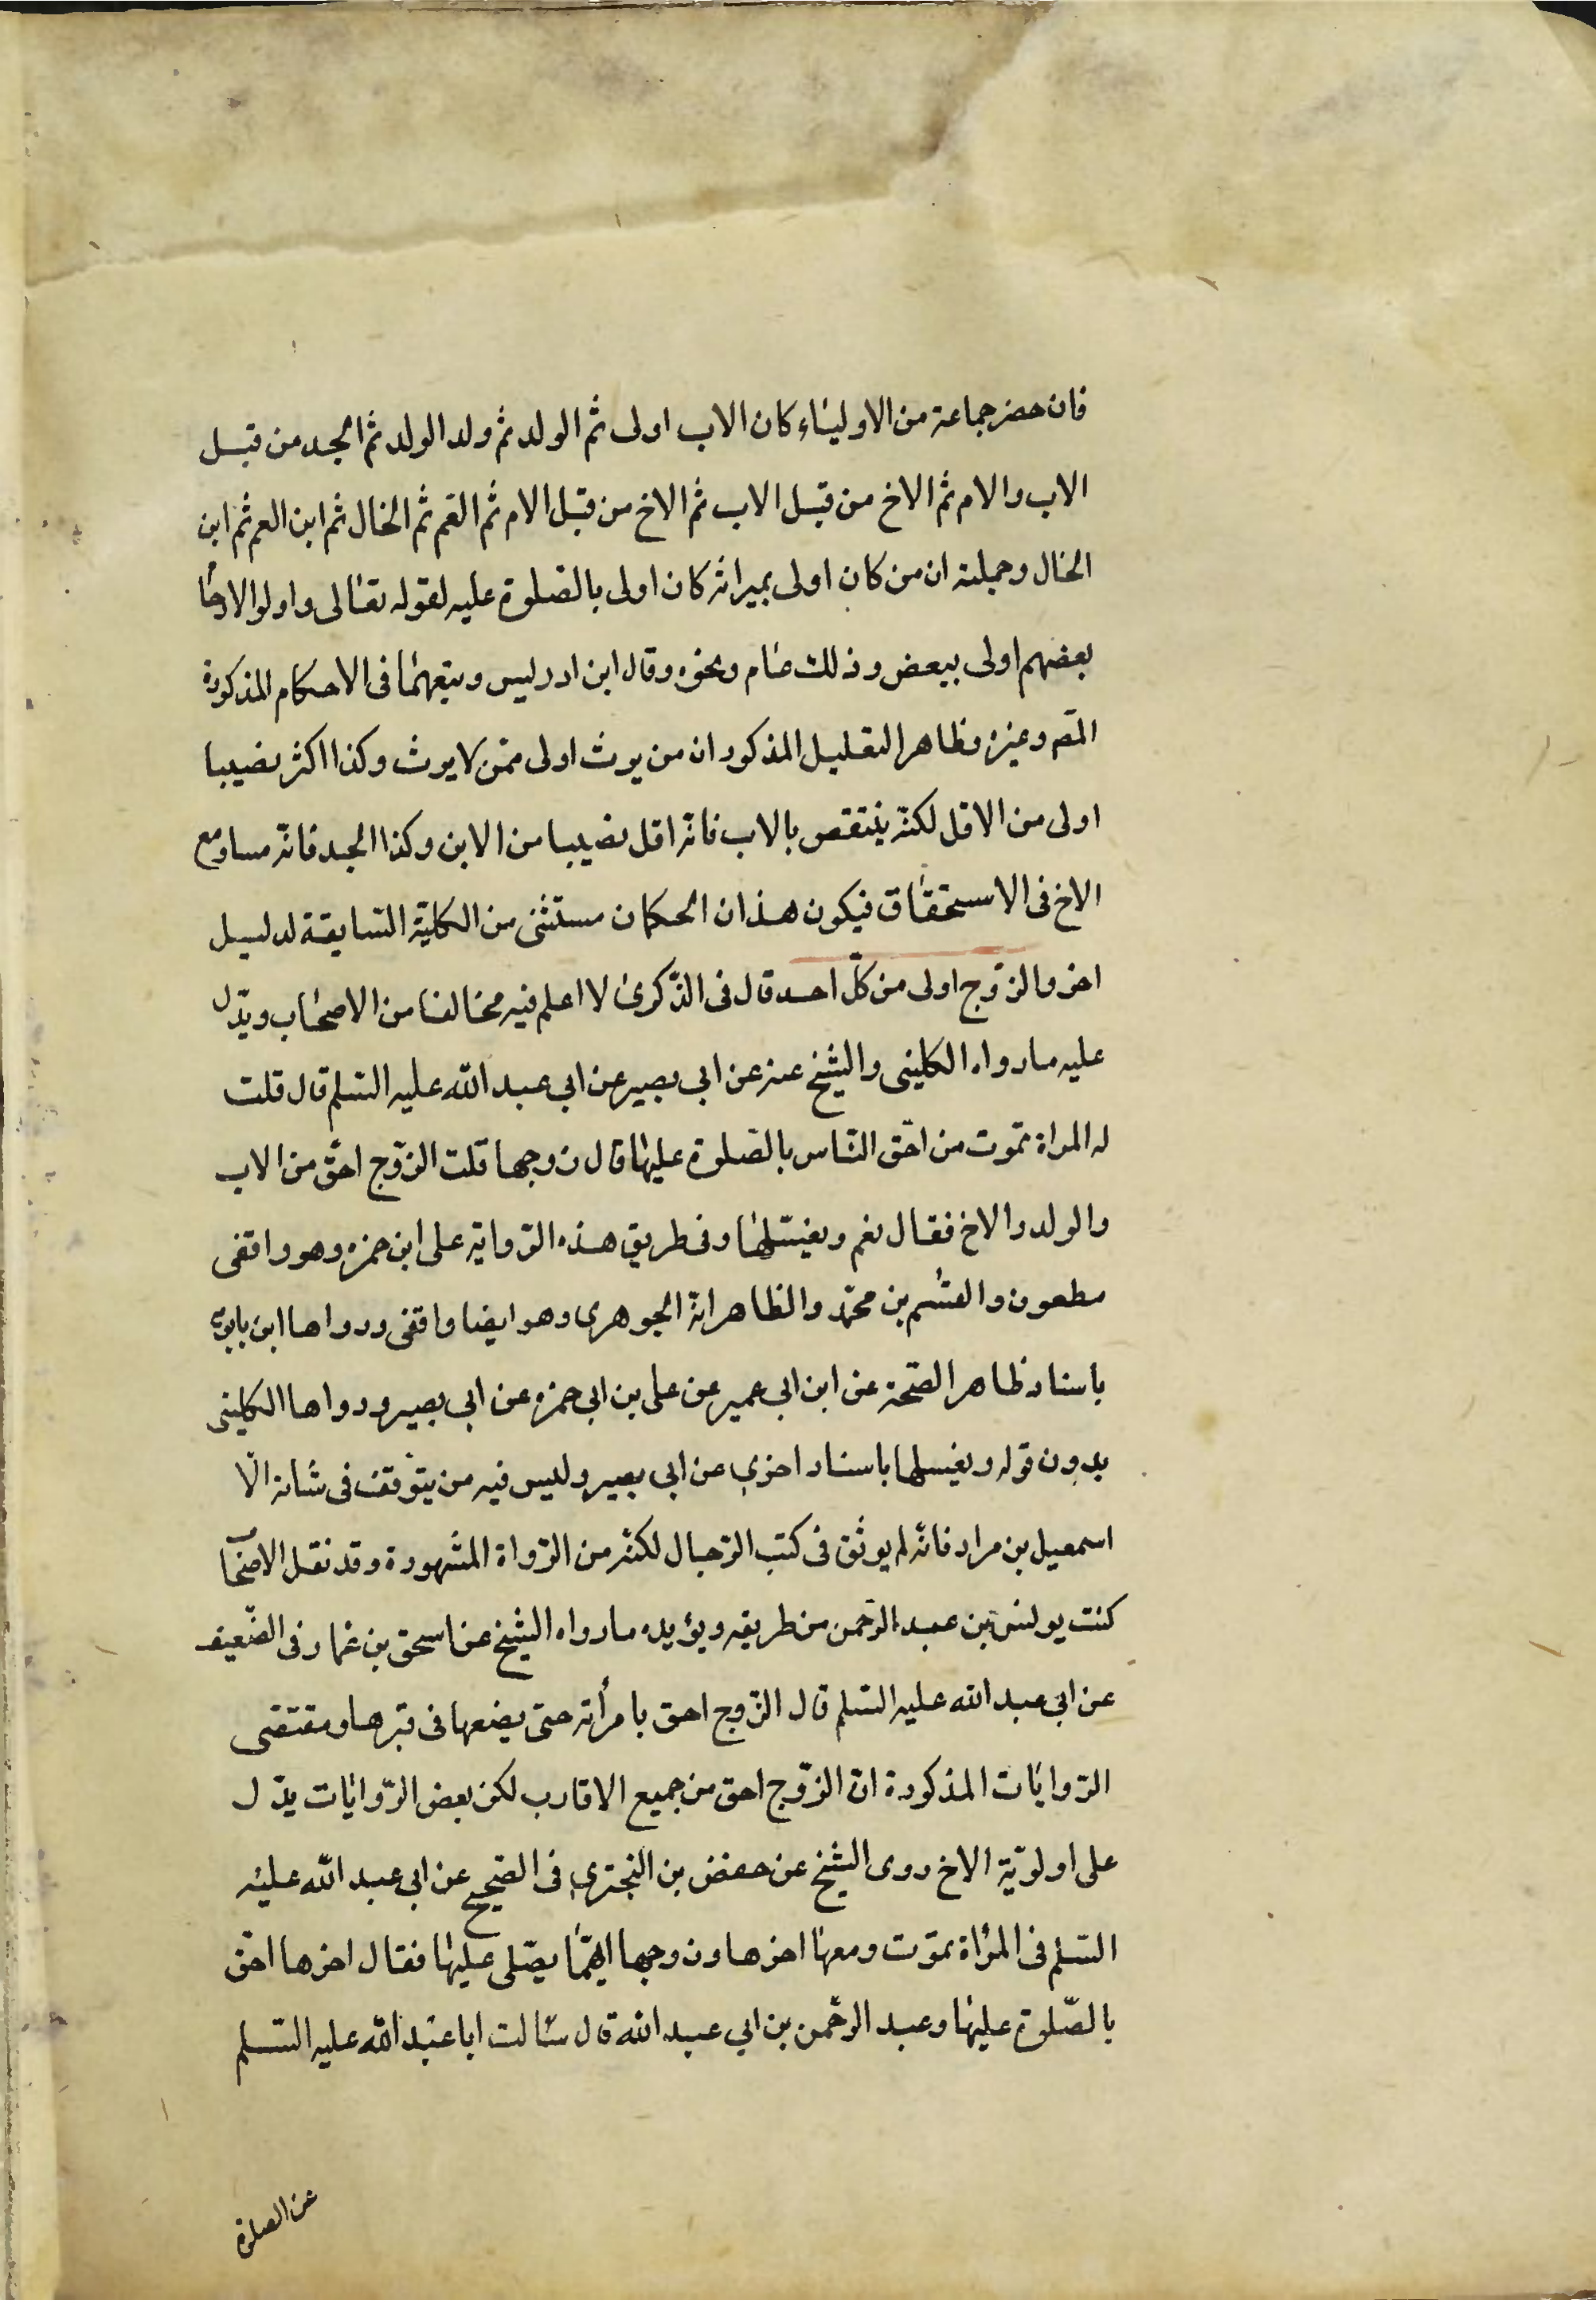 فان حضر جماعة من الاولياء كان الاب اولى ثم الولد ثم ولد الولد ثم الجد من قبل
الاب والام ثم الاخ من قبل الاب ثم الاخ من قبل الام ثم العم ثم الخال ثم ابن العم ثم ابن
الخال وجملته ان من كان اولى بميراثه كان اولى بالصلوة عليه لقوله تعالى واولوا الارحام
بعضهم اولى ببعض وذلك عام ونحوه وقال ابن ادريس وتبعهما فى الاحكام المذكورة
المصّ وغيره وظاهر التعليل المذكور ان من يرث اولى ممّن لا يرث وكذا اكثر نصيبا
اولى من الاقل لكنّه ينتقص بالاب فانّه اقل نصيبا من الابن وكذا الجد فانّه مساو مع
الاخ فى الاستحقاق فيكون هذان الحكمان مستثنى من الكليّة السّابقة لدليل
اخر والزّوج اولى من كلّ احد قال فى الذّكرى لا اعلم فيه مخالفا من الاصحاب ويدّل
عليه ما رواه الكلينى والشيخ عنه عن ابى بصير عن ابى عبد الله عليه السّلم قال قلت
له المراة تموت من احّق النّاس بالصّلوة عليها قال زوجها قلت الزّوج احّق من الاب
والولد والاخ فقال نعم ويغسّلها وفى طريق هذه الرّواية على ابن حمزه وهو واقفى
مطعون والقسم بن محمّد والظاهر انّه الجوهرى وهو ايضا واقفى ورواها ابن بابويه
باسناد ظاهر الصّحة عن ابن ابى عمير عن على بن ابى حمزه عن ابى بصير ورواها الكلينى
بدون قوله ويغسلها باسناد اخرى عن ابى بصير وليس فيه من يتوقف فى شانه الّا
اسمعيل بن مرار فانّه لم يوثق فى كتب الرّجال لكنّه من الرّواة المشهورة وقد نقل الاصحاب
كتب يونس بن عبد الرّحمن من طريقه ويؤيده ما رواه الشيخ عن اسحق بن عمار فى الضّعيف
عن ابى عبد الله عليه السّلم قال الزّوج احق بامرأته حتى يضعها فى قبرها ومقتضى
الرّوايات المذكورة انّ الزّوج احق من جميع الاقارب لكن بعض الرّوايات يدّل
على اولويّة الاخ روى الشيخ عن حفض بن البخترى فى الصّحيح عن ابى عبد الله عليه
السّلم فى المرأة تموت ومعها اخوها وزوجها ايّهما يصّلى عليها فقال اخوها احّق
بالصّلوة عليها وعبد الرحّمن بن ابى عبد الله قال سئالت ابا عبد الله عليه السّلم
عن الصلوة